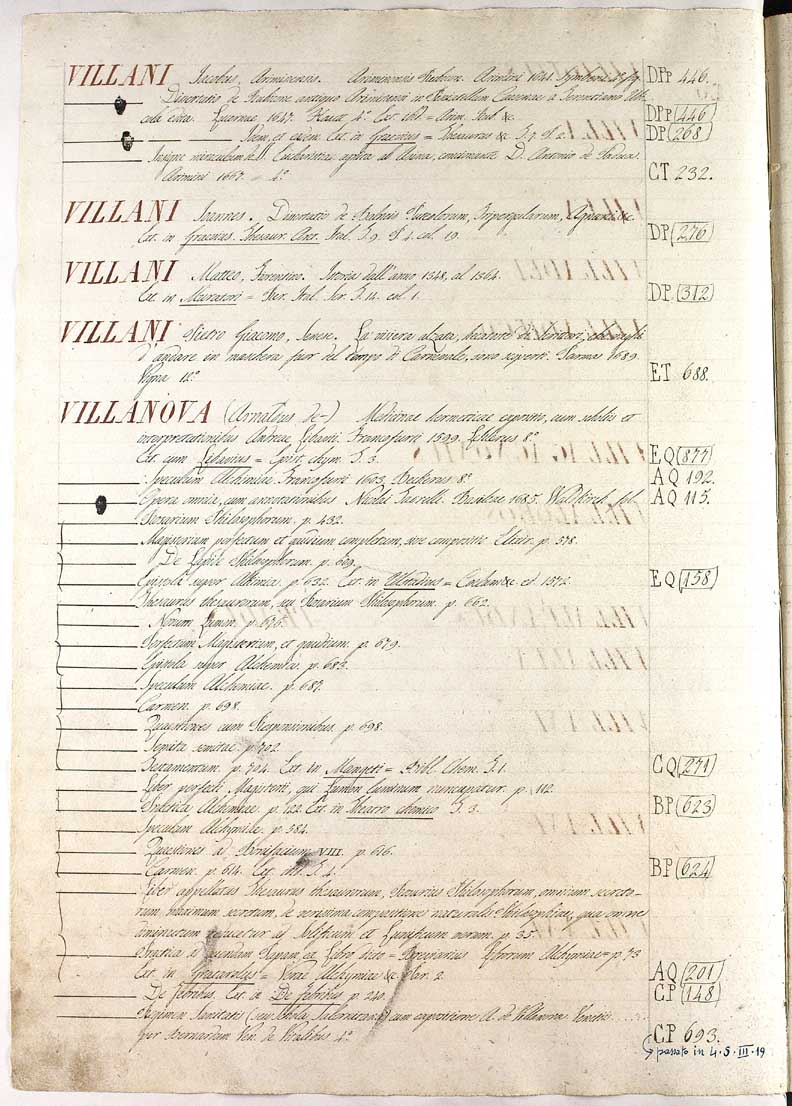 VILLANI Jacobus, Ariminensis. Ariminensis Rubicon. Arimini 1641. Symbenii DPp 446.
Dissertatio de Rubicone antiquo Ariminensi in
Faventiae 1647. 4.° Ext. ibid = Arim. Rub &c. DPp (446)
Idem, et eadem Ext. in Graevius = Thesaurus &c T. 7. P. 2. DP (268)
Insigne miraculum SS. Eucharistiae D. Antonio de Padua.
Arimini 1667. = 4.° CT 232.
VILLANI Joannes. Dissertatio de
Ext. in Graevius. Thesaur. Ant. Ital. T. 9. P. 4. col. 19. DP (276)
VILLANI Matteo, Fiorentino. Istoria dall'anno 1348, al 1364.
Ext. in Muratori = Rer. Ital. Scr. T. 14. col. 1. DP. (312)
VILLANI Pietro Giacomo, Senese. La visiera alzata, hecatoste di Scrittori, che vaghi
d'andare in maschera fuor del tempo di Carnevale, sono scoperti. Parma 1689.
Vigna 12.° ET 688.
VILLANOVA (Arnaldus de-) Medicinae hermeticae expositio, cum scholiis et
interpretationibus Andreae Libavii. Francofurti 1599. 8.°
Ext. cum Libavius = Epist. chym. T. 3. EQ (877)
Speculum Alchimiae. Francofurti 1603. Beckerus 8.° AQ 192.
Opera omnia, cum annotationibus Nicolai Taurelli. Basileae 1685. Waldkirch. fol. AQ 115.
Rosarium Philosophorum. p. 432.
Magisterium perfectum et gaudium completum, sive compositio Elixir. p. 578.
De Lapide Philosophorum. p. 609.
Epistola super Alkimia. p. 632. Ext. in = &c. ed. 1572. EQ (158)
Thesaurus thesaurorum, seu Rosarium Philosophorum. p. 662.
Novum Lumen. p. 676.
Perfectum Magisterium, et gaudium. p. 679.
Epistola super Alchemia. p. 683.
Speculum Alchemiae. p. 687.
Carmen. p. 698.
Quaestiones cum Responsionibus. p. 698.
Semita semitae. p. 702.
Testamentum. p. 704. Ext. in Mangeti = Bibl. Chem. T. 1. CQ (271)
Liber perfecti Magisterii, qui Lumen luminum nuncupatur. p. 112.
Practica Alchemiae. p. 122. Ext. in Theatro chimico T. 3. BP (623)
Speculum Alchymiae. p. 584.
Quaestiones ad Bonifacium VIII. p. 616.
Carmen. p. 614. Ext. ibid. T. 4. BP (624)
Liber appellatus Thesaurus thesaurorum, Rosarius Philosophorum, omnium secreto-
rum maximum secretum, de verissima compositione naturalis Philosophiae, qua omne
diminutum reducitur ad Solificum et Lunificum verum. p. 35.
Practica ad quendam Papam, ex Libro dicto = Breviarius Librorum Alchymiae = p. 73
Ext. in = Verae Alchymiae &c. Par. 2. AQ (201)
De febribus. Ext. in De febribus p. 240. CP (148)
Regimen Sanitatis (seu Schola Salernitana) cum expositione A. de Villanova. Venetiis
per Bernardum Ven. de Vitalibus 4.° CP 693.
passato in 4. S. III. 19